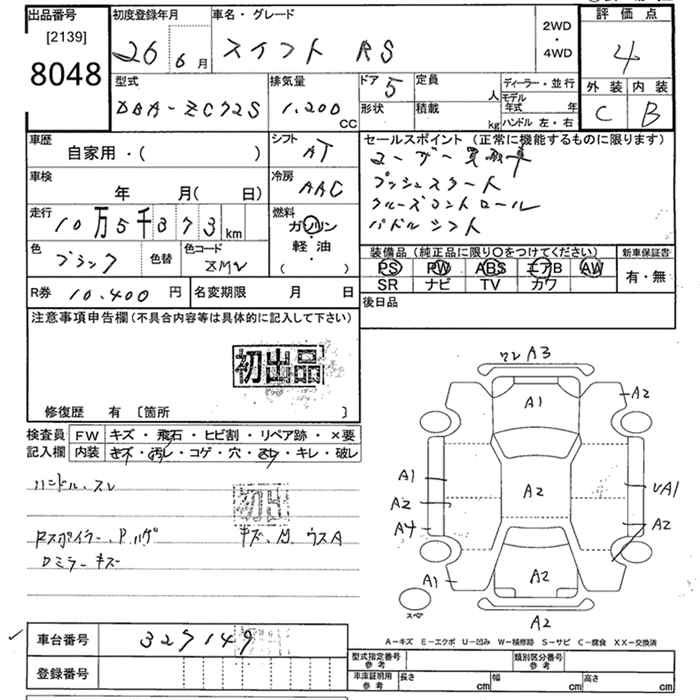 出品番号
[2139]
8048
初度登録年月
26 6月
車名・グレード
スイフト RS
2WD
・
4WD
評価点
4
外装 内装
C B
型式
DBA-ZC72S
排気量
1,200 CC
ドア
5
形状
定員 人
積載 kg
ディーラー・並行
モデル年式 年
ハンドル 左・右
車歴
自家用・( )
シフト
AT
車検
年 月( 日)
冷房
AAC
走行
10万5千373km
燃料
ガソリン
軽・油
( )
色
ブラック
色替
色コード
ZMV
R券 10.400 円
名変期限 月 日
セールスポイント(正常に機能するものに限ります)
ユーザー買取車
プッシュスタート
クルーズコントロール
パドルシフト
装備品(純正品に限り○をつけてください)
PS PW ABS エアB AW
SR ナビ TV カワ
新車保証書
有・無
後日品
注意事項申告欄(不具合内容等は具体的に記入して下さい)
初出品
修復歴 有 [箇所 ]
検査員記入欄
FW キズ・飛石・ヒビ割・リペア跡・×要
内装 キズ・汚レ・コゲ・穴・スレ・キレ・破レ
ハンドル.スレ
Rスポイラー、P.ハゲ キズ、 ウスA
Dミラーキズ
ワレ A3
A1
A2
A1
A2
A2
A4
A1
A2
A2
A2
スペア
A-キズ E-エクボ U-凹み W-補修跡 S-サビ C-腐食 XX-交換済
車台番号 327149
登録番号
型式指定番号参考
類別区分番号参考
車庫証明用参考 長さ cm 幅 cm 高さ cm